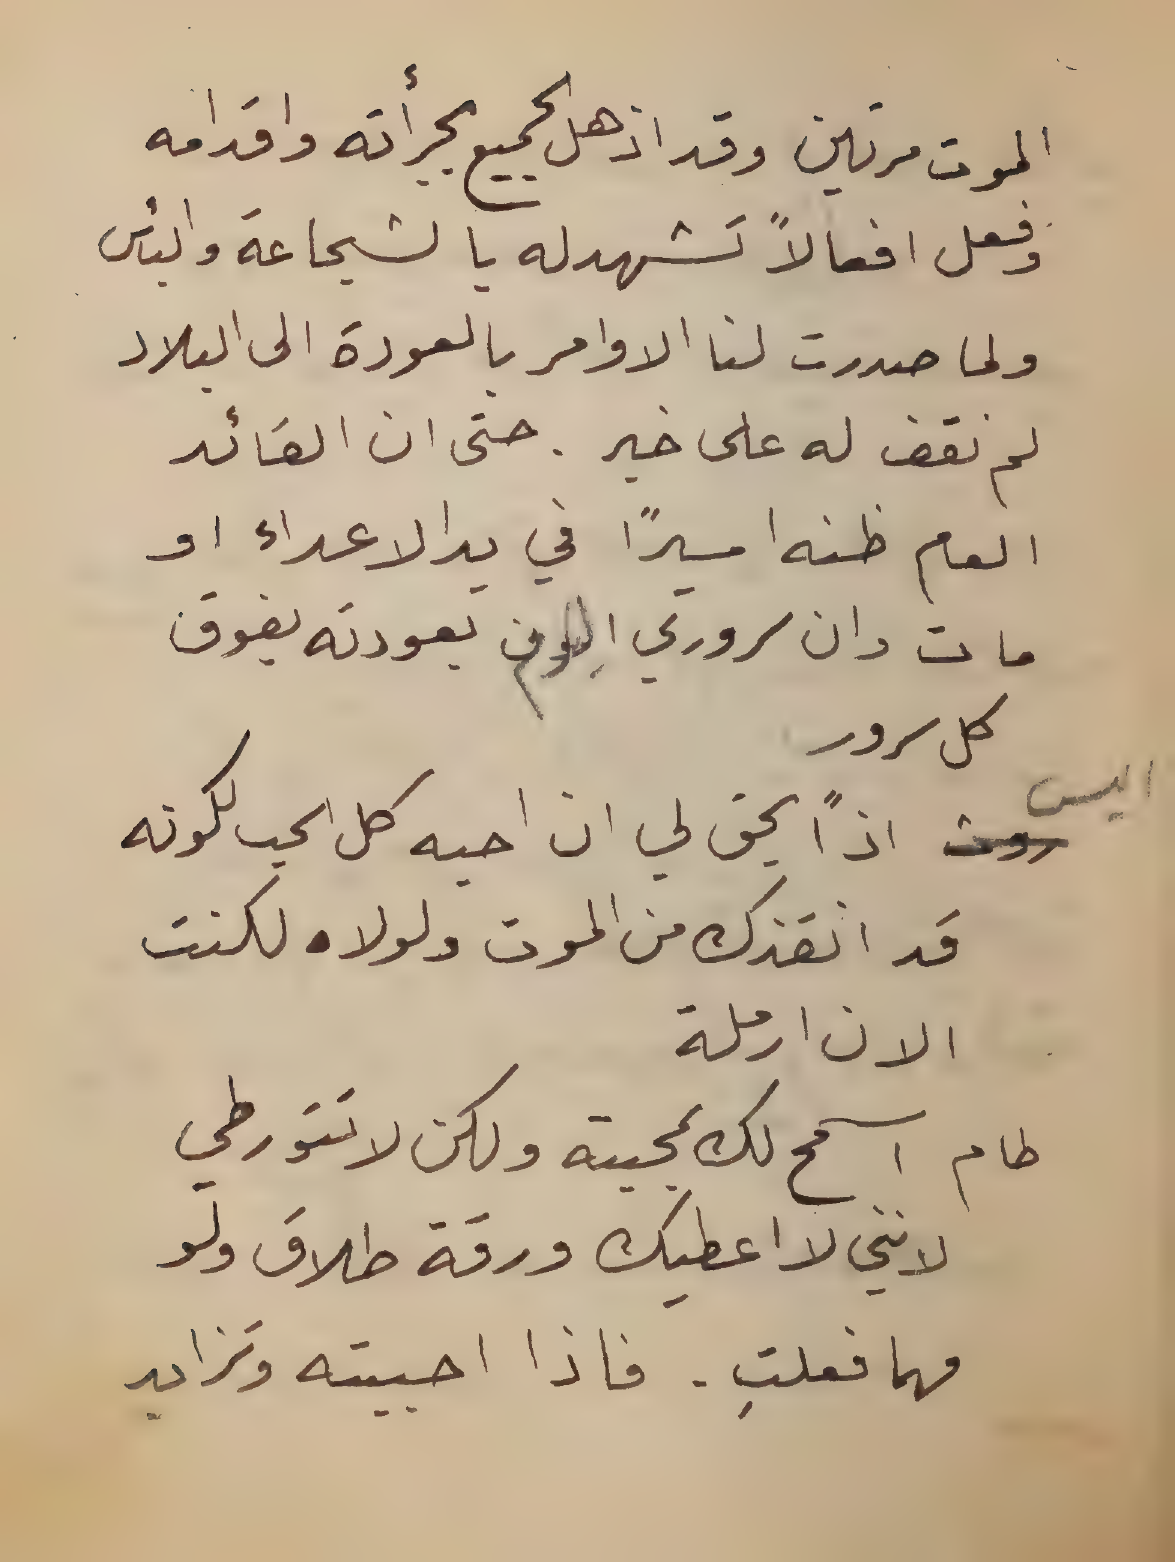 الموت مرتين وقد اذهل الجميع بجرأته واقدامه
وفعل افعالاً تشهد له بالشجاعة والبأس
ولما صدرت لنا الاوامر بالعودة الى البلاد
لم نقف له على خبر . حتى ان القائد
العام ظنه اسيرًا في يد الاعداء او
مات وان سروري اليوم بعودته يفوق
كل سرور
اليس
روث اذاً يحق لي ان احبه كل الحب لكونه
قد انقذك من الموت ولولاه لكنت
الان ارملة
طام اسمح لك بمحبته ولكن لا تتورطي
لانني لا اعطيك ورقة طلاق ولو
مهما فعلتِ . فاذا احببته وتزايد